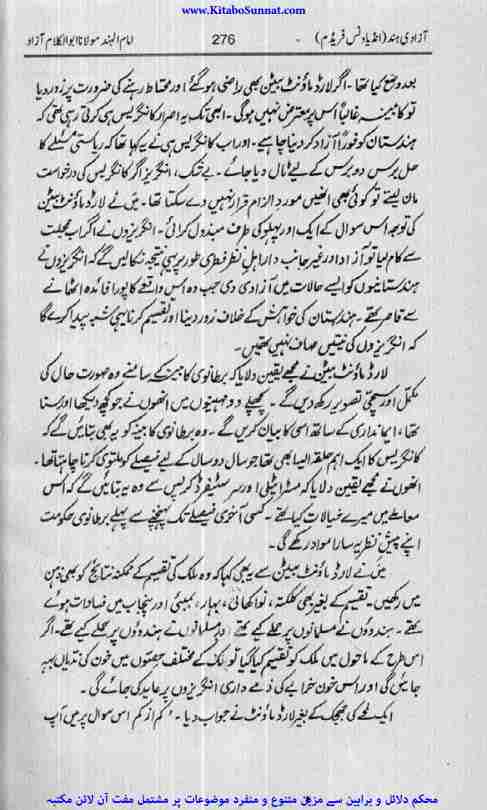 www.KitaboSunnat.com
آزادی ہند (انڈیا ونس فریڈم)
276
امام الہند مولانا ابوالکلام آزاد
بعد وضع کیا تھا۔ اگر لارڈ ماؤنٹ بیٹن بھی راضی ہو گئے اور محتاط رہنے کی ضرورت پر زور دیا
تو کابینہ غالباً اس پر معترض نہیں ہوگی۔ ابھی تک یہ اصرار کانگریس ہی کرتی رہی تھی کہ
ہندستان کو فوراً آزاد کر دینا چاہیے۔ اور اب کانگریس ہی نے یہ کہا تھا کہ ریاستی مسئلے کا
حل برس دو برس کے لیے ٹال دیا جائے۔ بے شک، انگریز اگر کانگریس کی درخواست
مان لیتے تو کوئی بھی انھیں مورد الزام قرار نہیں دے سکتا تھا۔ میں نے لارڈ ماؤنٹ بیٹن
کی توجہ اس سوال کے ایک اور پہلو کی طرف مبذول کرائی۔ انگریزوں نے اگر اب عجلت
سے کام لیا تو آزاد اور غیر جانب دار اہل نظر فطری طور پر یہی نتیجہ نکالیں گے کہ انگریزوں نے
ہندستانیوں کو ایسے حالات میں آزادی دی جب وہ اس واقعے کا پورا فائدہ اٹھانے
سے قاصر تھے۔ ہندستان کی خواہش کے خلاف زور دینا اور تقسیم کرنا یہی شبہ پیدا کرے گا
کہ انگریزوں کی نیتیں صاف نہیں تھیں۔
لارڈ ماؤنٹ بیٹن نے مجھے یقین دلایا کہ برطانوی کابینہ کے سامنے وہ صورت حال کی
مکمل اور سچی تصویر رکھ دیں گے۔ پچھلے دو مہینوں میں انھوں نے جو کچھ دیکھا اور سنا
تھا، ایمانداری کے ساتھ اسی کا بیان کریں گے۔ وہ برطانوی کابینہ کو یہ بھی بتائیں گے کہ
کانگریس کا ایک اہم حلقہ ایسا بھی تھا جو سال دو سال کے لیے فیصلے کو ملتوی کرنا چاہتا تھا۔
انھوں نے مجھے یقین دلایا کہ مسٹر ایٹلی اور سر سٹیفرڈ کرپس سے وہ یہ بتائیں گے کہ اس
معاملے میں میرے خیالات کیا تھے۔ کسی آخری فیصلے تک پہنچنے سے پہلے برطانوی حکومت
اپنے پیش نظر یہ سارا مواد رکھے گی۔
میں نے لارڈ ماؤنٹ بیٹن سے یہ بھی کہا کہ وہ ملک کی تقسیم کے ممکنہ نتائج کو بھی ذہن
میں رکھیں۔ تقسیم کے بغیر بھی کلکتہ، نواکھالی، بہار، بمبئی اور پنجاب میں فسادات ہوئے
تھے۔ ہندوؤں نے مسلمانوں پر حملے کیے تھے اور مسلمانوں نے ہندوؤں پر حملے کیے تھے۔ اگر
اس طرح کے ماحول میں ملک کو تقسیم کیا گیا تو ملک کے مختلف حصوں میں خون کی ندیاں بہہ
جائیں گی اور اس خون خرابے کی ذمے داری انگریزوں پر عاید کی جائے گی۔
ایک لمحے کی جھجک کے بغیر لارڈ ماؤنٹ نے جواب دیا۔ ’کم از کم اس سوال پر میں آپ
محکم دلائل و براہین سے مزین متنوع و منفرد موضوعات پر مشتمل مفت آن لائن مکتبہ